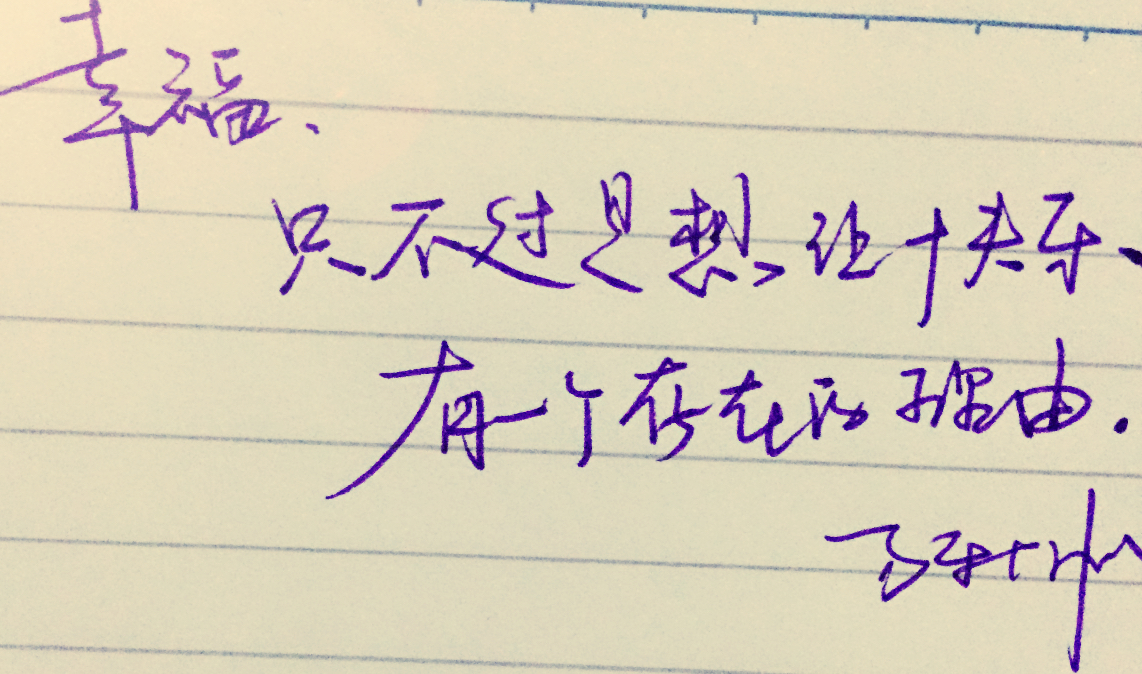 幸福、
只不过是想让快乐、
有一个存在的理由.